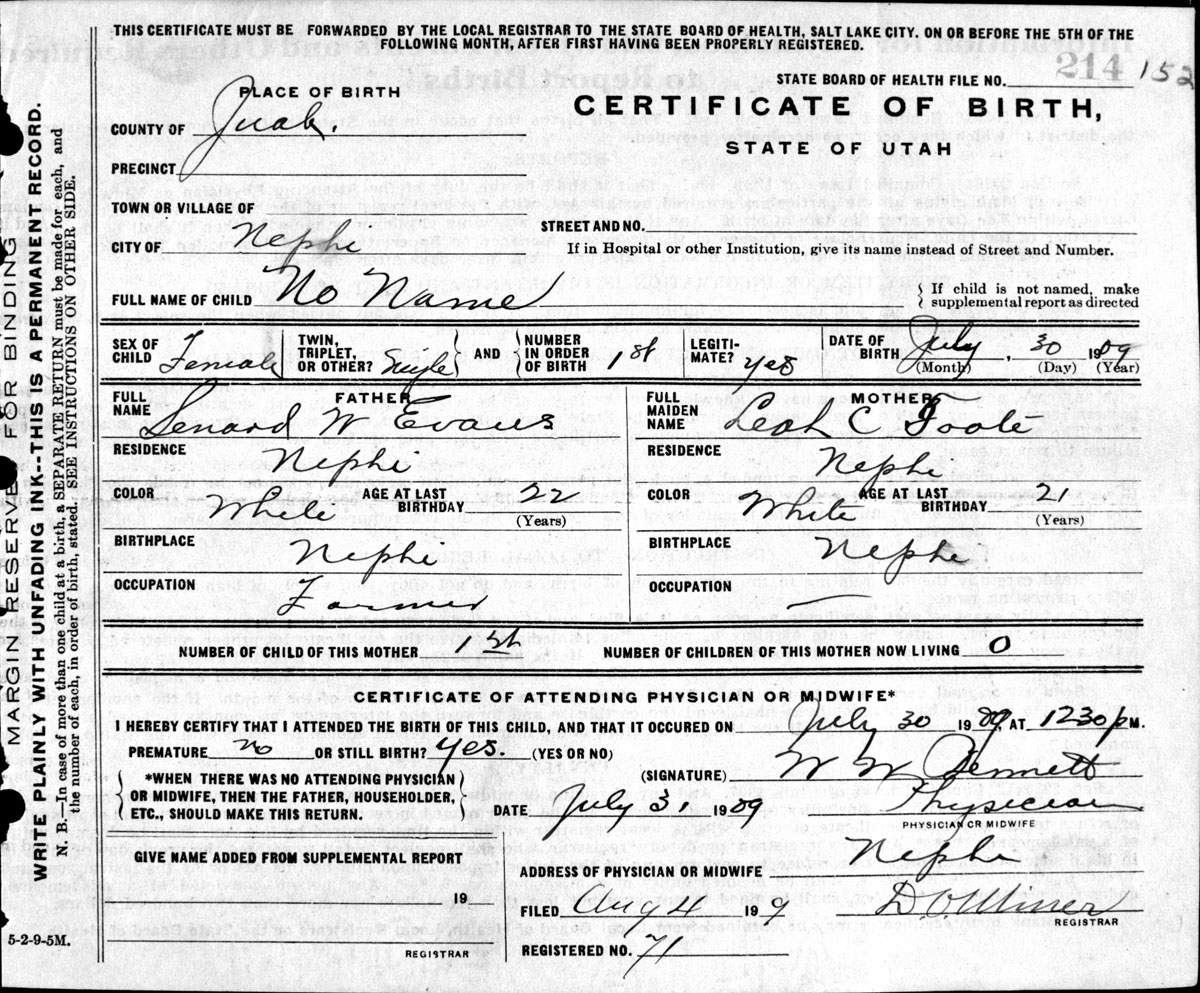 THIS CERTIFICATE MUST BE FORWARDED BY THE LOCAL REGISTRAR TO THE STATE BOARD OF HEALTH, SALT LAKE CITY. ON OR BEFORE THE 5TH OF THE
FOLLOWING MONTH, AFTER FIRST HAVING BEEN PROPERLY REGISTERED.
STATE BOARD OF HEALTH FILE NO. 214 152
PLACE OF BIRTH
CERTIFICATE OF BIRTH,
STATE OF UTAH
COUNTY OF Juab.
PRECINCT
TOWN OR VILLAGE OF
STREET AND NO.
CITY OF Nephi
If in Hospital or other Institution, give its name instead of Street and Number.
FULL NAME OF CHILD No Name
If child is not named, make
supplemental report as directed
SEX OF CHILD Female
TWIN, TRIPLET, OR OTHER? Single
AND NUMBER IN ORDER OF BIRTH 1st
LEGITI-MATE? yes
DATE OF BIRTH July, 30 1909
(Month) (Day) (Year)
FATHER
FULL NAME W Evans
RESIDENCE Nephi
COLOR White AGE AT LAST BIRTHDAY 22
(Years)
BIRTHPLACE Nephi
OCCUPATION Farmer
MOTHER
FULL MAIDEN NAME Leah C
RESIDENCE Nephi
COLOR White AGE AT LAST BIRTHDAY 21
(Years)
BIRTHPLACE Nephi
OCCUPATION —
NUMBER OF CHILD OF THIS MOTHER 1st NUMBER OF CHILDREN OF THIS MOTHER NOW LIVING 0
CERTIFICATE OF ATTENDING PHYSICIAN OR MIDWIFE*
I HEREBY CERTIFY THAT I ATTENDED THE BIRTH OF THIS CHILD, AND THAT IT OCCURED ON July 30 1909, AT 1230 P M.
PREMATURE no OR STILL BIRTH? yes. (YES OR NO)
*WHEN THERE WAS NO ATTENDING PHYSICIAN
OR MIDWIFE, THEN THE FATHER, HOUSEHOLDER,
ETC., SHOULD MAKE THIS RETURN.
(SIGNATURE) W W
DATE July 31 1909 Physician
PHYSICIAN OR MIDWIFE
GIVE NAME ADDED FROM SUPPLEMENTAL REPORT
19
REGISTRAR
ADDRESS OF PHYSICIAN OR MIDWIFE Nephi
FILED Aug 4 19 9 Miner
REGISTRAR
REGISTERED NO. 71
5-2-9-5M.
MARGIN RESERVED FOR BINDING
WRITE PLAINLY WITH UNFADING INK--THIS IS A PERMANENT RECORD.
N. B.—In case of more than one child at a birth, a SEPARATE RETURN must be made for each, and
the number of each, in order of birth, stated. SEE INSTRUCTIONS ON OTHER SIDE.